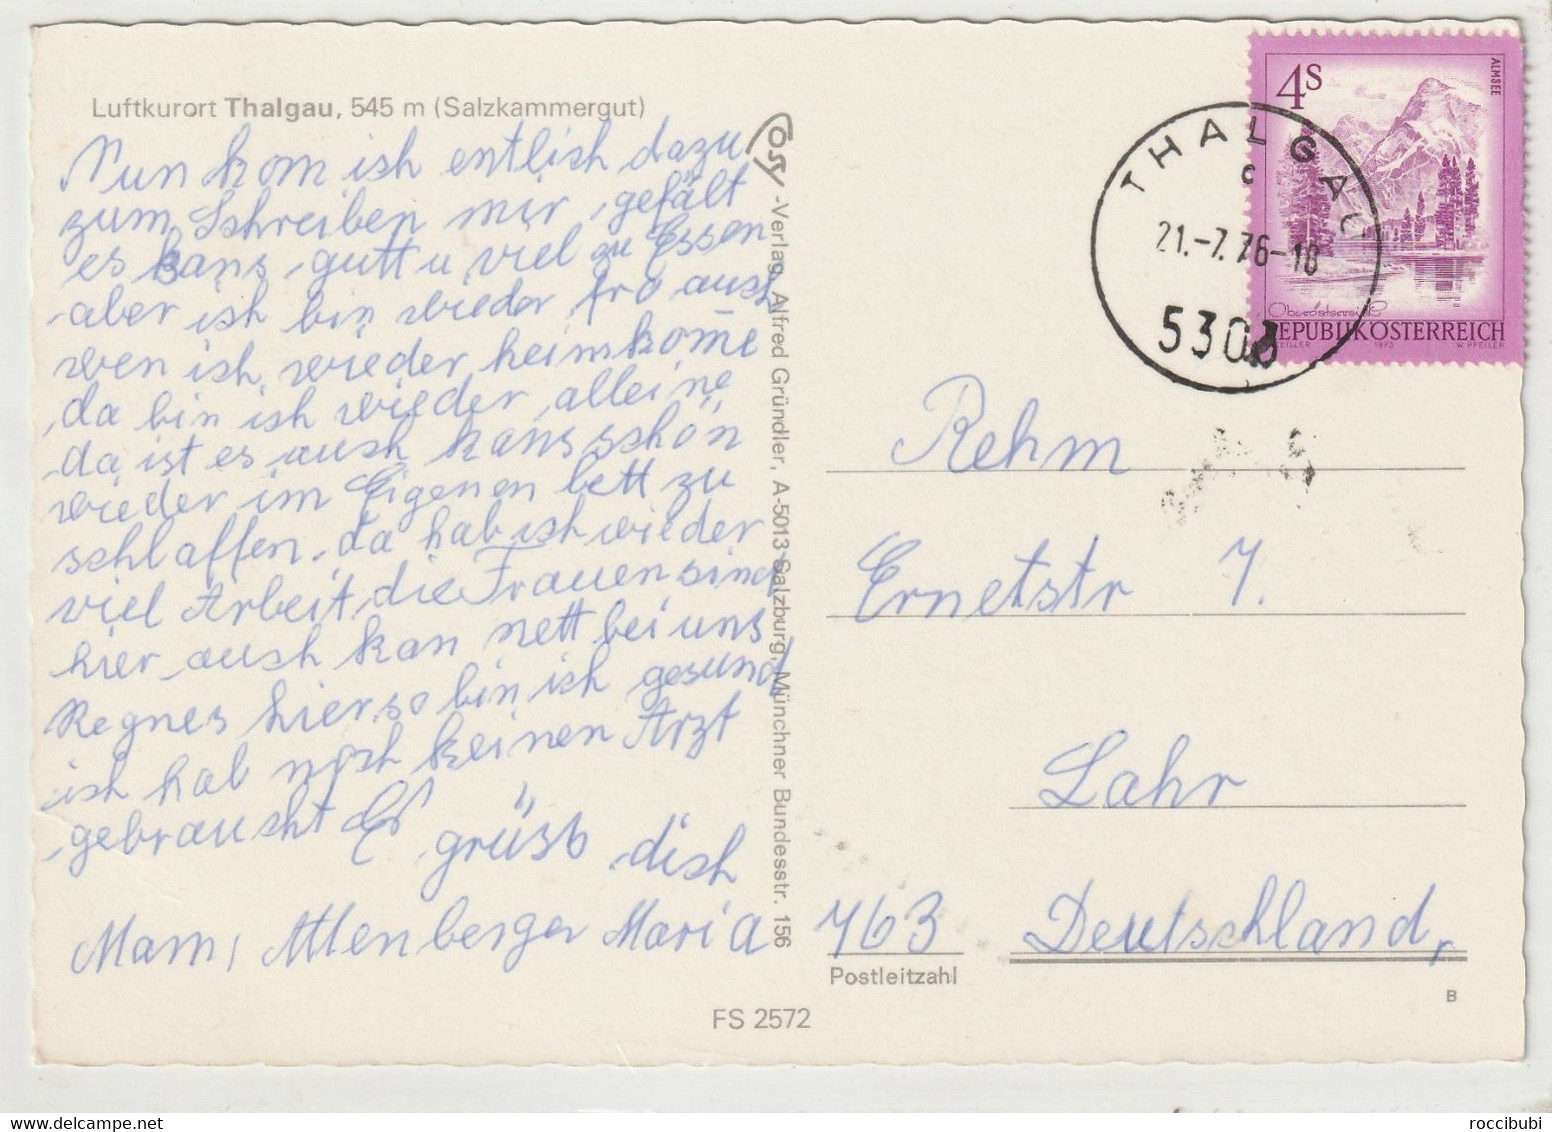 Luftkurort Thalgau, 545 m (Salzkammergut)
Nun kom ish entlish dazu
zum Schreiben mir gefält
es kans gutt u viel zu Essen
aber ish bin wieder fro aush
wen ish wieder heimkome
da bin ish wieder alleine
da ist es aush kans schön
wieder im Eigenen bett zu
schlaffen, da hab ish wieder
viel Arbeit, die Frauen sind
hier aush kan nett bei uns
Regnes hier so bin ish gesund
ish hab nosh keinen Arzt
gebrausht Es grüst dish
Mam, Altenberger Maria
ÖSV-Verlag Alfred Gründler, A-5013 Salzburg, Münchner Bundesstr. 156
FS 2572
4S
ALMSEE
Oberösterreich
REPUBLIK ÖSTERREICH
ZEILLER 1973 W. PFEILER
THALGAU
c
21.-7.76-18
5303
Rehm
Ernetstr 7.
Lahr
763 Deutschland,
Postleitzahl
B
roccibubi